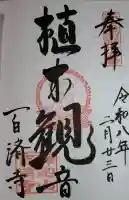 奉拝
令和八年
二月廿三日
植木観音
百済寺